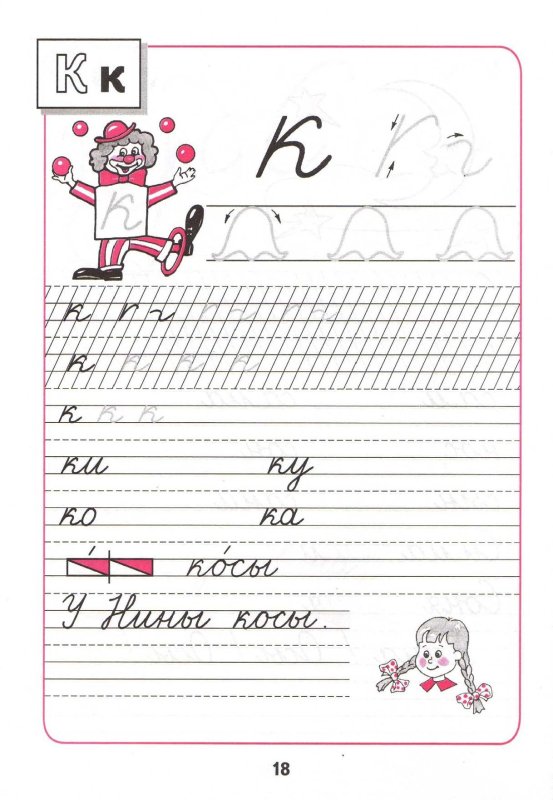 К к
к
к
к
к к к к
к к к
ки ку
ко ка
ко́сы
У Нины косы.
18